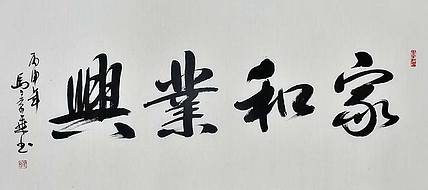 家和業興
丙申年
馬
書